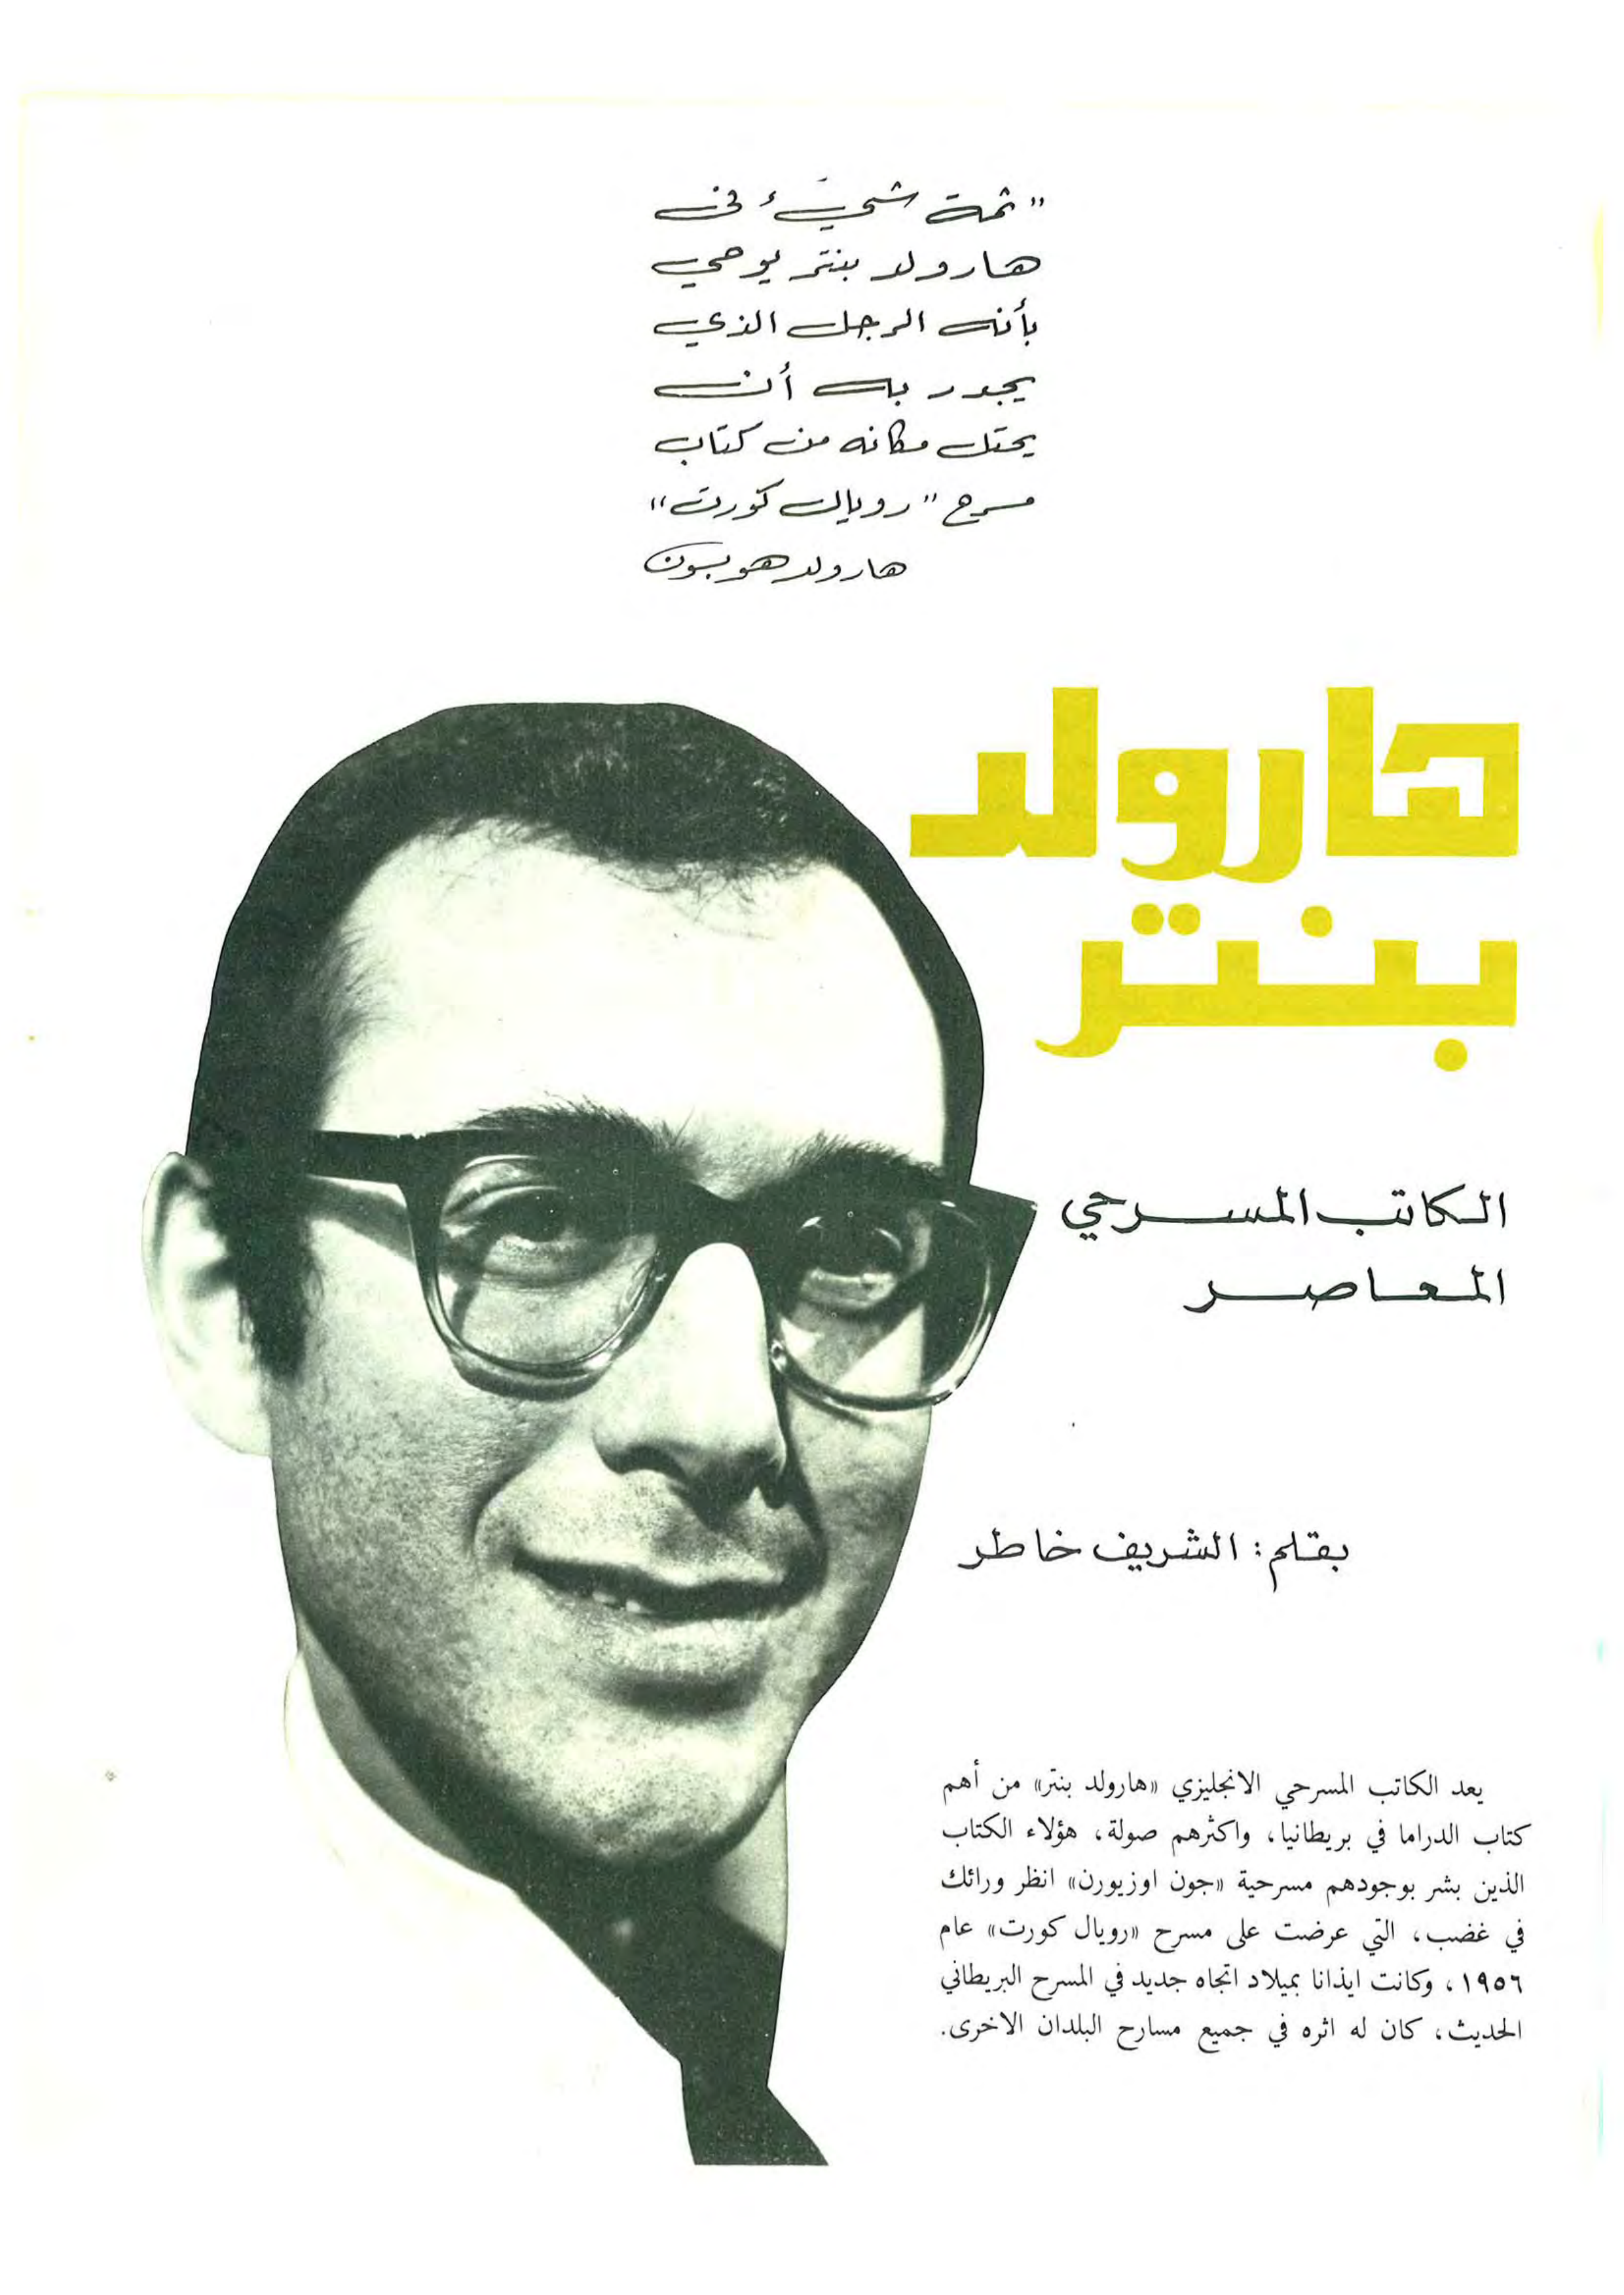 "ثمة شيء في
هارولد بنتر يوحي
بأنه الرجل الذي
يجدر به أن
يحتل مكانه من كتاب
مسرح "رويال كورت"
هارولد هوبسون
هارولد
بنتر
الكاتب المسرحي
المعاصر
بقلم: الشريف خاطر
يعد الكاتب المسرحي الانجليزي «هارولد بنتر» من أهم
كتاب الدراما في بريطانيا، واكثرهم صولة، هؤلاء الكتاب
الذين بشر بوجودهم مسرحية «جون اوزبورن» انظر ورائك
في غضب، التي عرضت على مسرح «رويال كورت» عام
١٩٥٦، وكانت ايذانا بميلاد اتجاه جديد في المسرح البريطاني
الحديث، كان له اثره في جميع مسارح البلدان الاخرى.